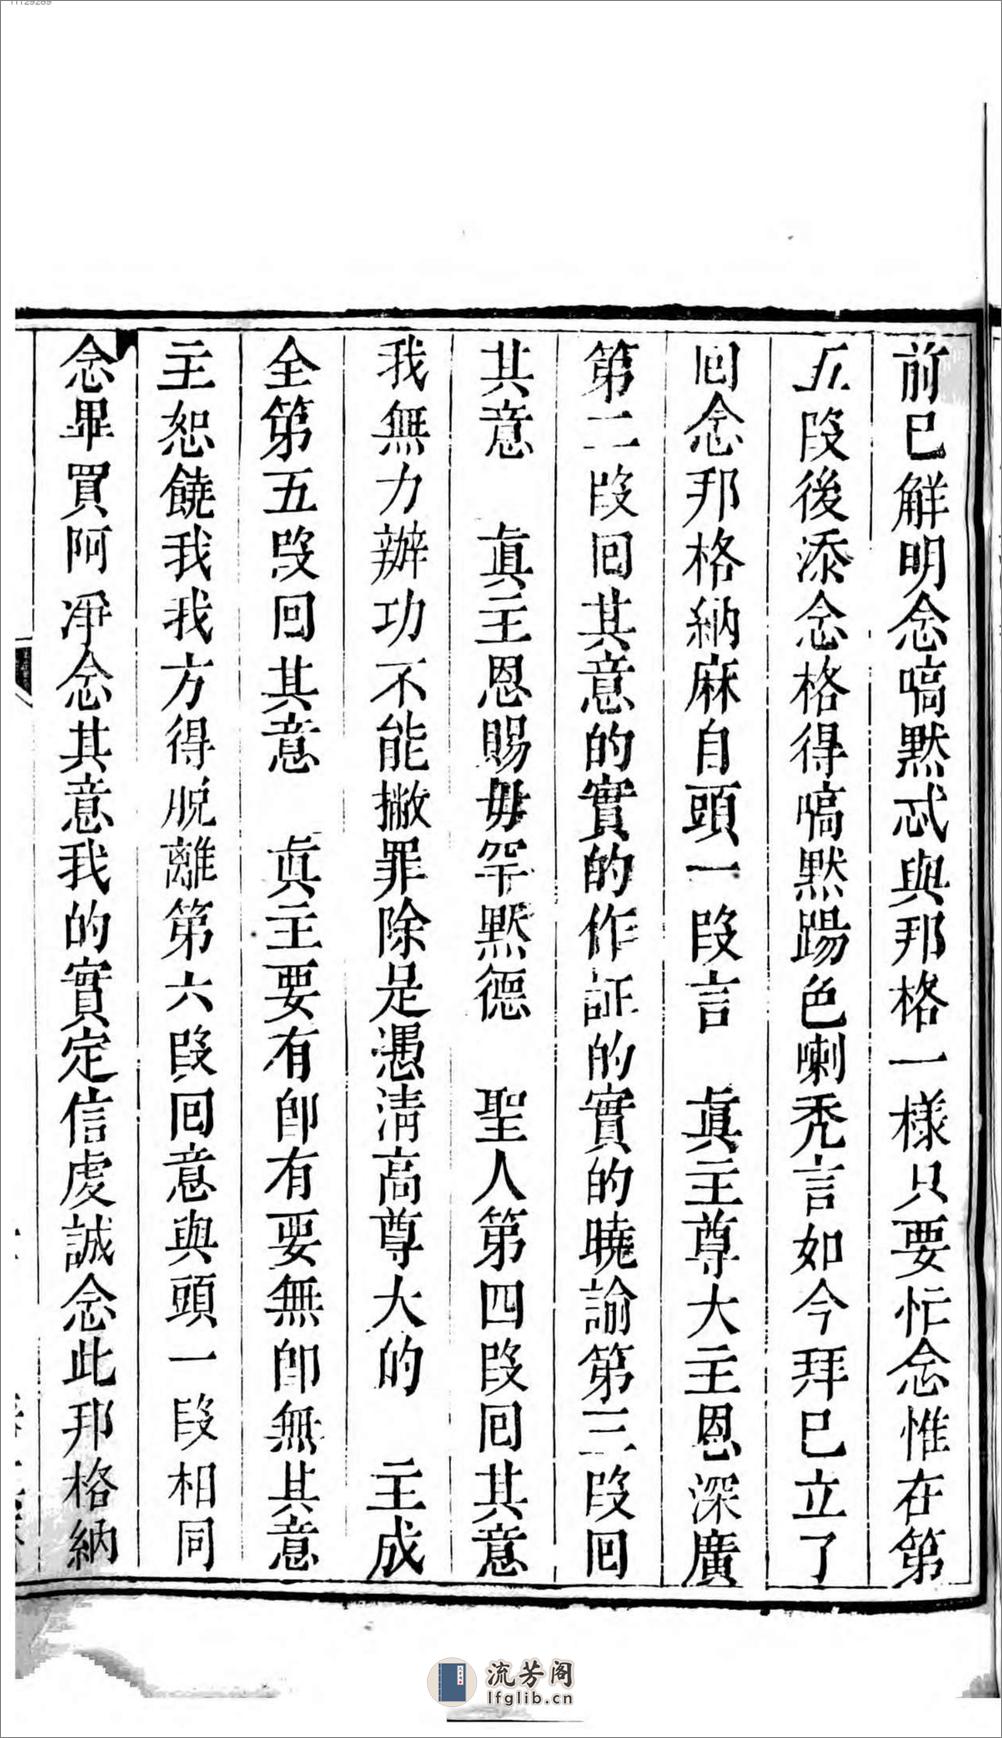 前已解明念嗃黙忒與邦格一樣只要忙念惟在第
五段後添念格得嗃黙踢色喇禿言如今拜已立了
回念邦格納麻自頭一段言　眞主尊大主恩深廣
第二段回其意的實的作証的實的曉諭第三段回
其意　眞主恩賜毋罕黙德　聖人第四段回其意
我無力辦功不能撇罪除是慿清高尊大的　主成
全第五段回其意　眞主要有卽有要無卽無其意
主恕饒我我方得脫離第六段回意與頭一段相同
念畢買阿凈念其意我的實定信虔誠念此邦格納
流芳阁
lfglib.cn